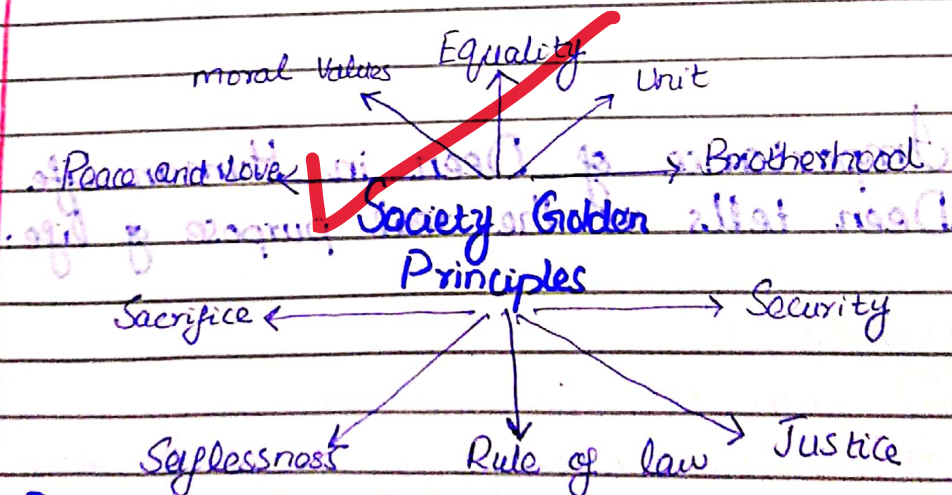 Equality
moral Values
Unit
Peace and Love
Brotherhood
Society Golden
Principles
Sacrifice
Security
Seflessness
Rule of law
Justice